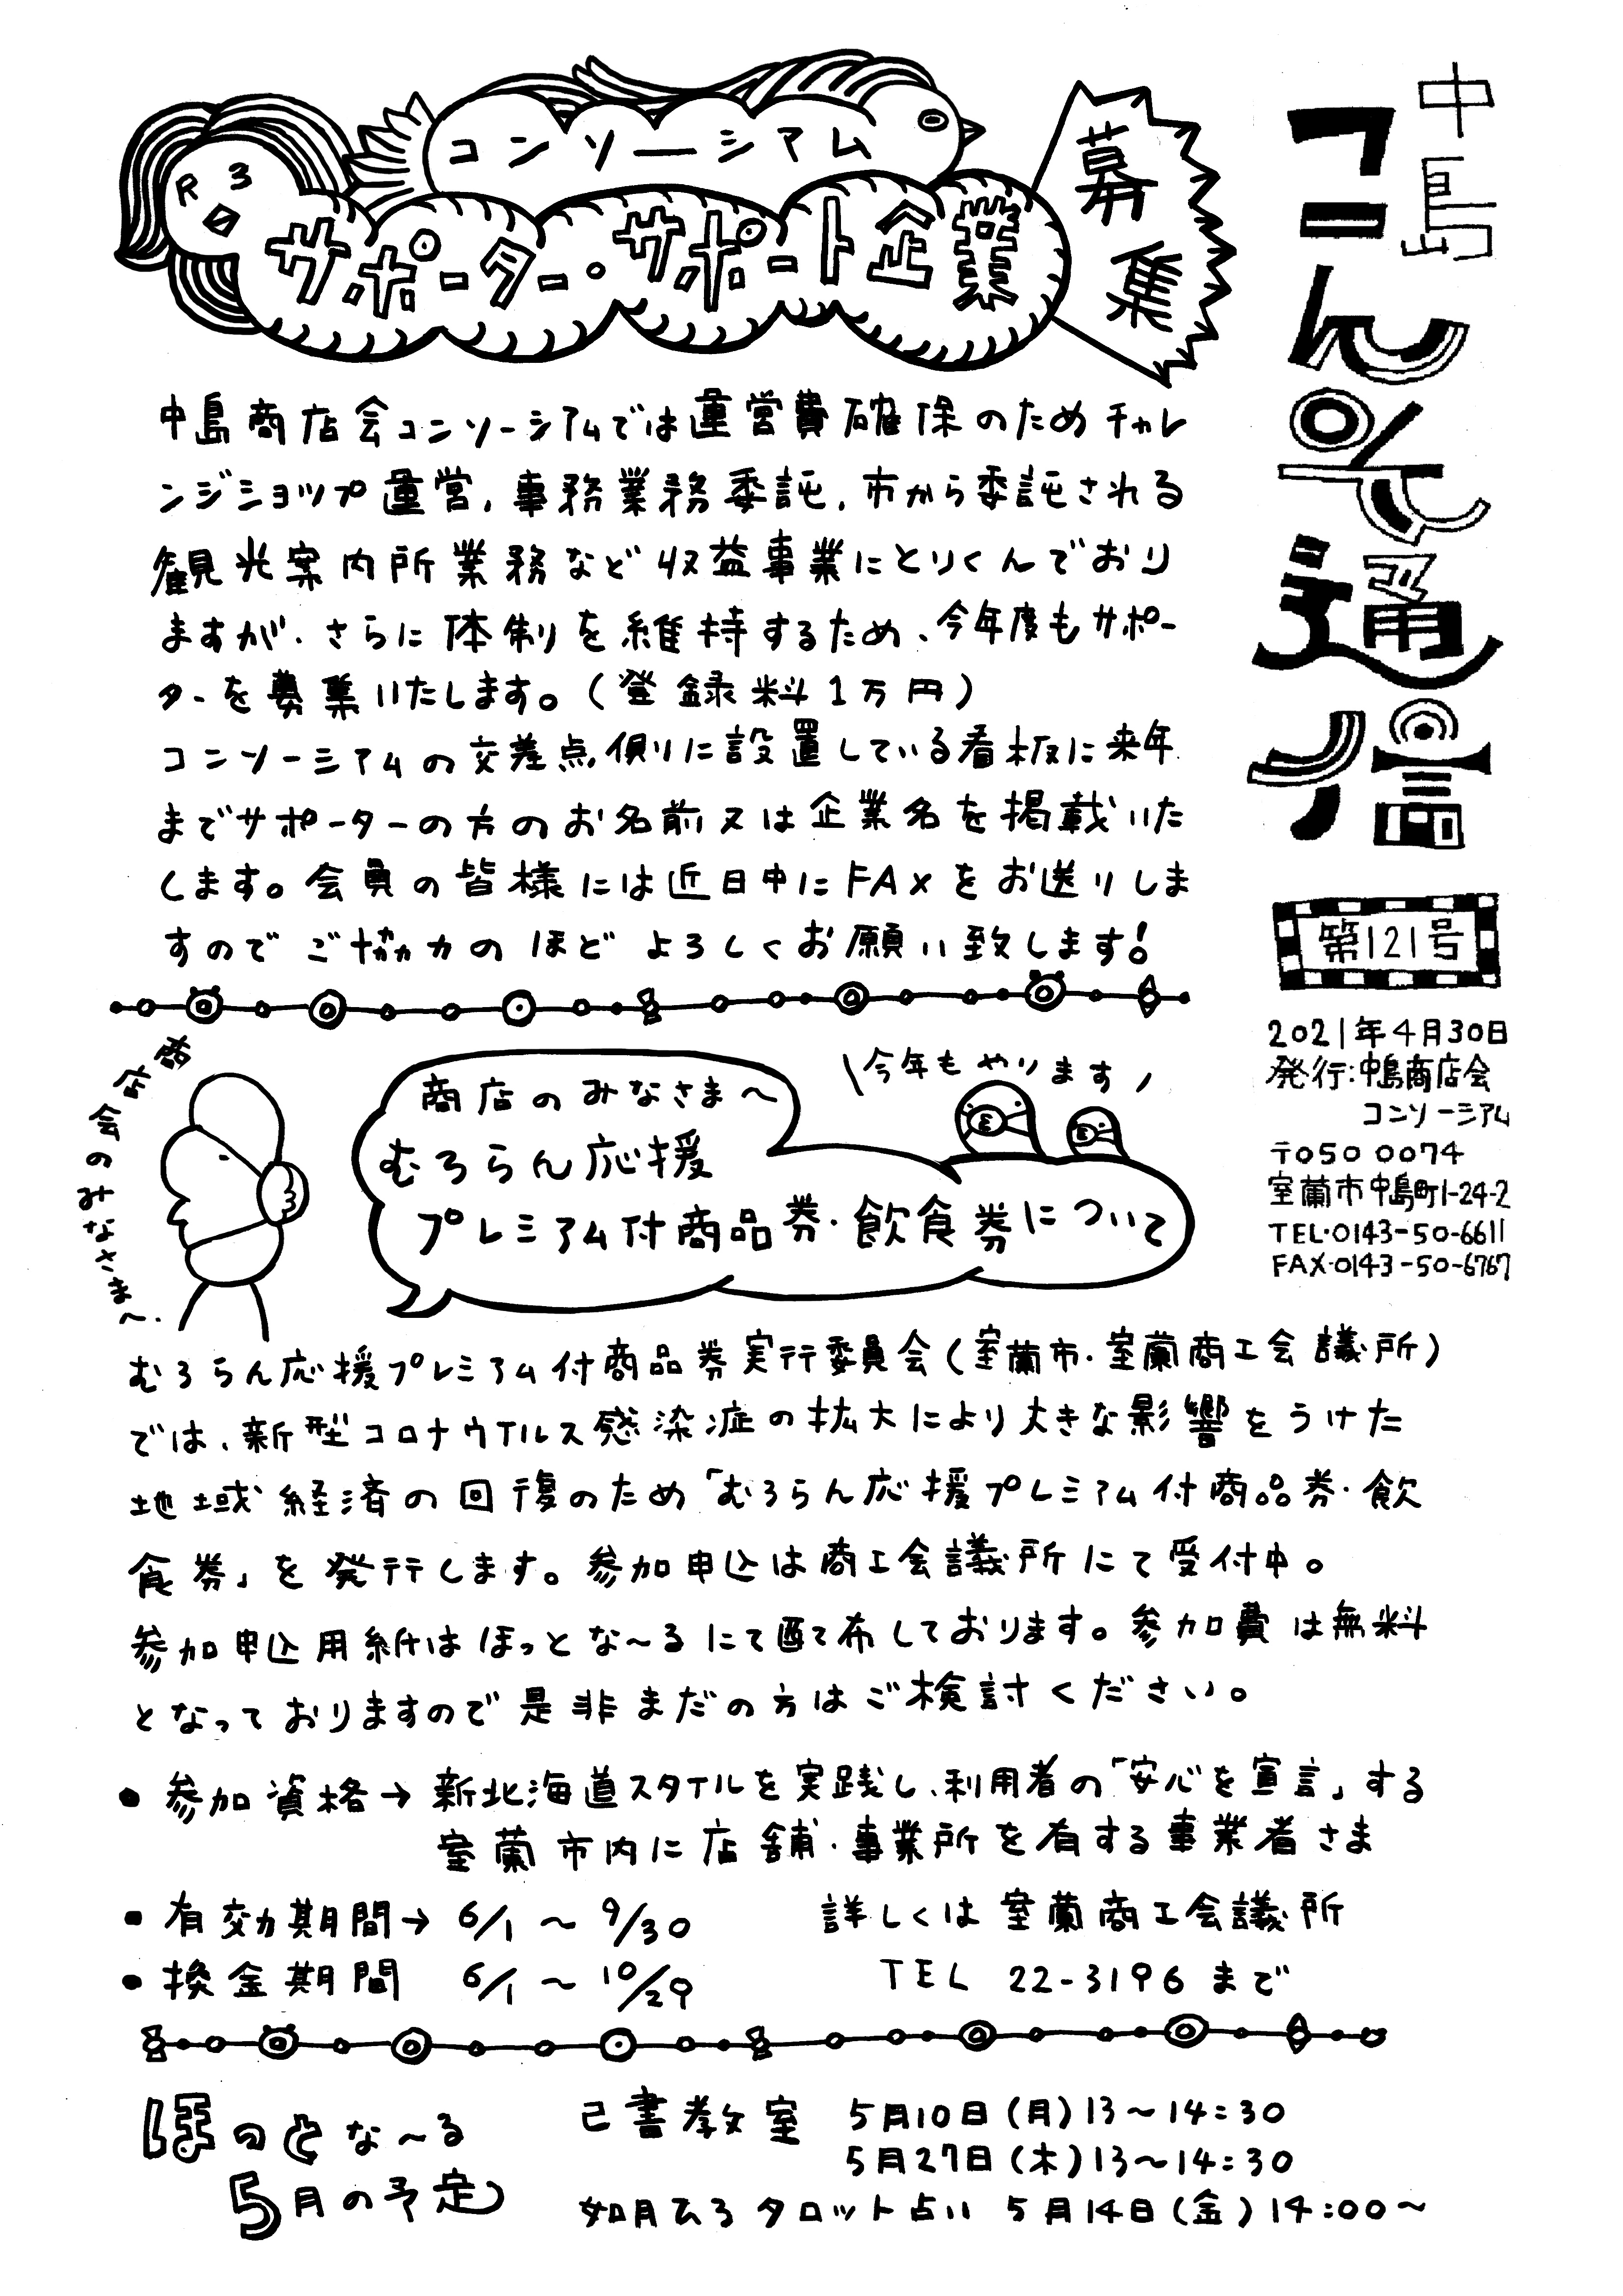 中島
コンソ通信
第121号
2021年4月30日
発行:中島商店会
コンソーシアム
〒050 0074
室蘭市中島町1-24-2
TEL・0143-50-6611
FAX・0143-50-6767
R3
コンソーシアム
サポーター・サポート企業
募集
中島商店会コンソーシアムでは運営費確保のためチャレ
ンジショップ運営、事務業務委託、市から委託される
観光案内所業務など収益事業にとりくんでおり
ますが、さらに体制を維持するため、今年度もサポー
ターを募集いたします。(登録料1万円)
コンソーシアムの交差点側に設置している看板に来年
までサポーターの方のお名前又は企業名を掲載いた
します。会員の皆様には近日中にFAXをお送りしま
すのでご協力のほどよろしくお願い致します!
商店会のみなさま〜
商店のみなさま〜
むろらん応援
プレミアム付商品券・飲食券について
\今年もやります/
むろらん応援プレミアム付商品券実行委員会(室蘭市・室蘭商工会議所)
では、新型コロナウイルス感染症の拡大により大きな影響をうけた
地域経済の回復のため「むろらん応援プレミアム付商品券・飲
食券」を発行します。参加申込は商工会議所にて受付中。
参加申込用紙はほっとな〜るにて配布しております。参加費は無料
となっておりますので是非まだの方はご検討ください。
• 参加資格→新北海道スタイルを実践し、利用者の「安心を宣言」する
室蘭市内に店舗・事業所を有する事業者さま
• 有効期間→ 6/1 〜 9/30
• 換金期間 6/1 〜 10/29
詳しくは室蘭商工会議所
TEL 22-3196まで
ほっとな〜る
5月の予定
己書教室 5月10日(月)13〜14:30
5月27日(木)13〜14:30
如月ひろタロット占い 5月14日(金)14:00〜